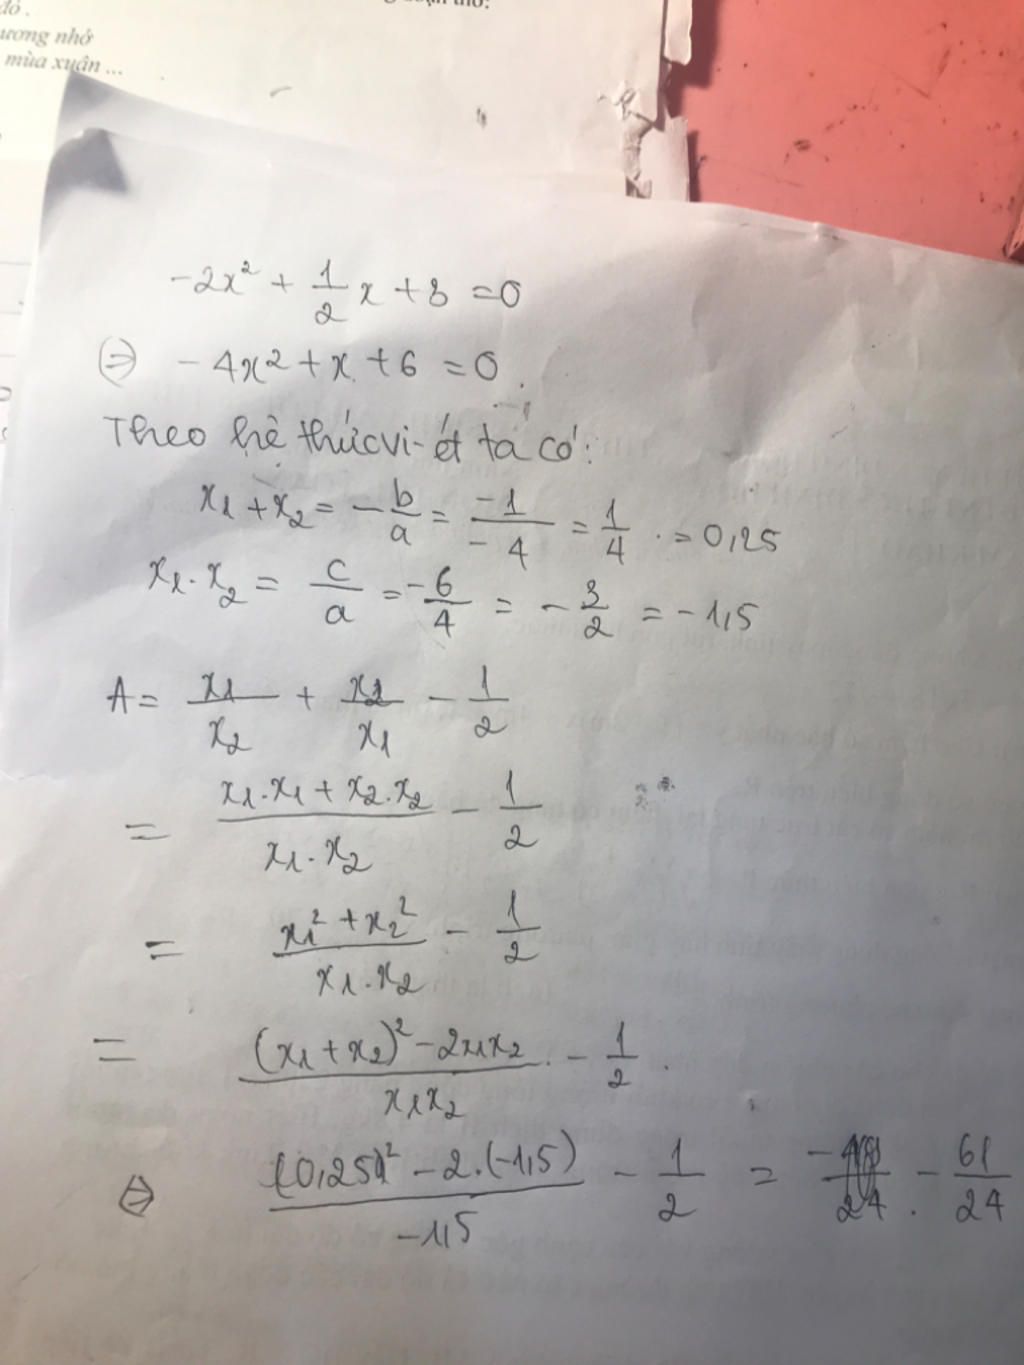 đỏ.
ương nhớ
mùa xuân ...
-2x² + 1/2 x + 3 = 0
(=) - 4x² + x + 6 = 0.
Theo hệ thức vi-ét ta có:
x1 + x2 = - b/a = -1/-4 = 1/4 . = 0,25
x1 . x2 = c/a = -6/4 = - 3/2 = -1,5
A = x1/x2 + x2/x1 - 1/2
= (x1.x1 + x2.x2)/(x1.x2) - 1/2
= (x1² + x2²)/(x1.x2) - 1/2
= ((x1 + x2)² - 2x1x2)/(x1x2) . - 1/2 .
(=) ((0,25)² - 2.(-1,5))/(-1,5) - 1/2 = - 61/24